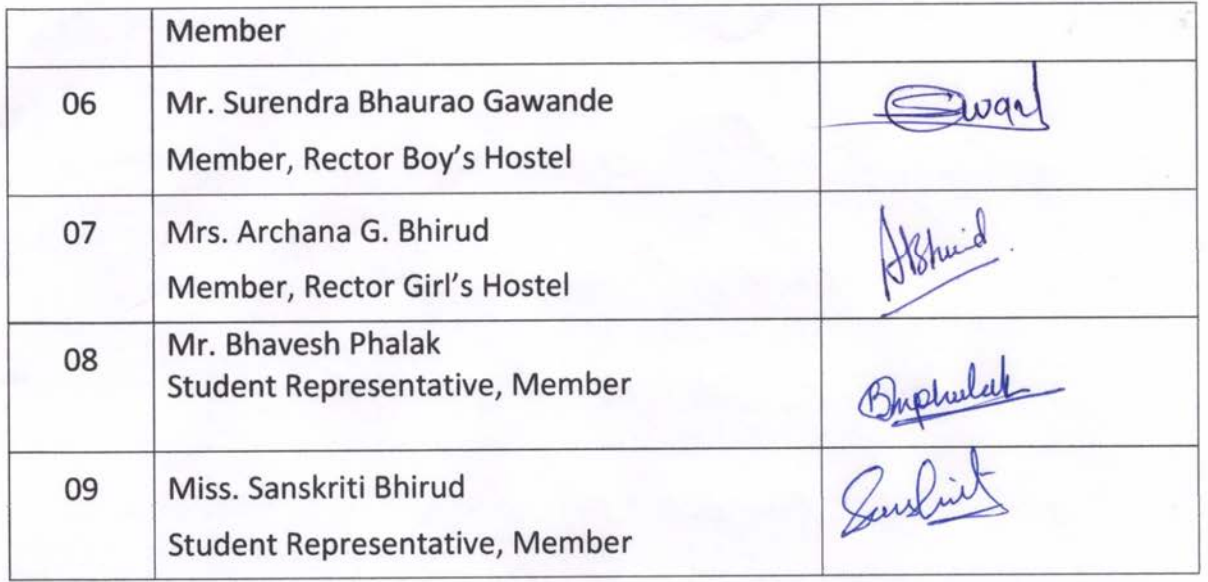 Member
06
Mr. Surendra Bhaurao Gawande
Member, Rector Boy's Hostel
07
Mrs. Archana G. Bhirud
Member, Rector Girl's Hostel
08
Mr. Bhavesh Phalak
Student Representative, Member
09
Miss. Sanskriti Bhirud
Student Representative, Member